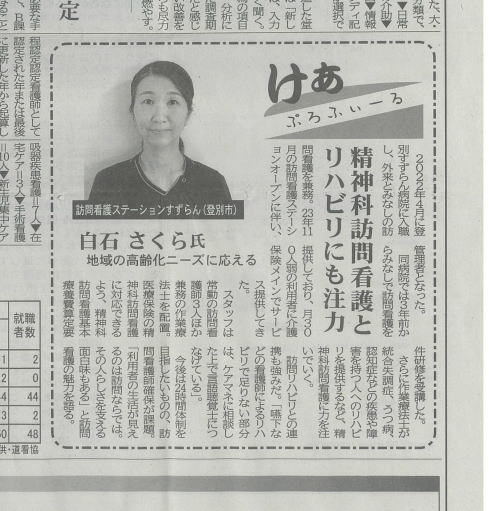 けあ
ぷろふぃーる
精神科訪問看護と
リハビリにも注力
訪問看護ステーションすずらん（登別市）
白石 さくら氏
地域の高齢化ニーズに応える
2022年4月に登
別すずらん病院に入職
し、外来とみなしの訪
問看護を兼務。23年11
月の訪問看護ステーシ
ョンオープンに伴い、
管理者となった。
同病院では3年前か
らみなしで訪問看護を
提供しており、月30
0人弱の利用者に介護
保険メインでサービ
ス提供してき
た。
スタッフは
常勤の訪問看
護師3人ほか
兼務の作業療
法士を配置。
医療保険の精
神科訪問看護
に対応できる
よう、精神科
訪問看護基本
療養費算定要
件研修を受講した。
さらに作業療法士が
統合失調症、うつ病、
認知症などの疾患や障
害を持つ人へのリハビ
リを提供するなど、精
神科訪問看護に力を注
いでいく。
訪問リハビリとの連
携も強みだ。「嚥下な
どの看護師によるリハ
ビリで足りない部分
は、ケアマネに相談し
た上で言語聴覚士につ
なげている」。
今後は24時間体制を
目指したいものの、訪
問看護師確保が課題。
「利用者の生活が見え
るのは訪問ならでは。
その人らしさを支える
面白味もある」と訪問
看護の魅力を語る。
程認定認定看護師として
認定された年または最後
に更新した年から起算し
吸器疾患看護＝7人▼在
宅ケア＝3人▼手術看護
＝10人▼新生児集中ケア
定
就職
者数
2
0
44
2
48
供・道看協